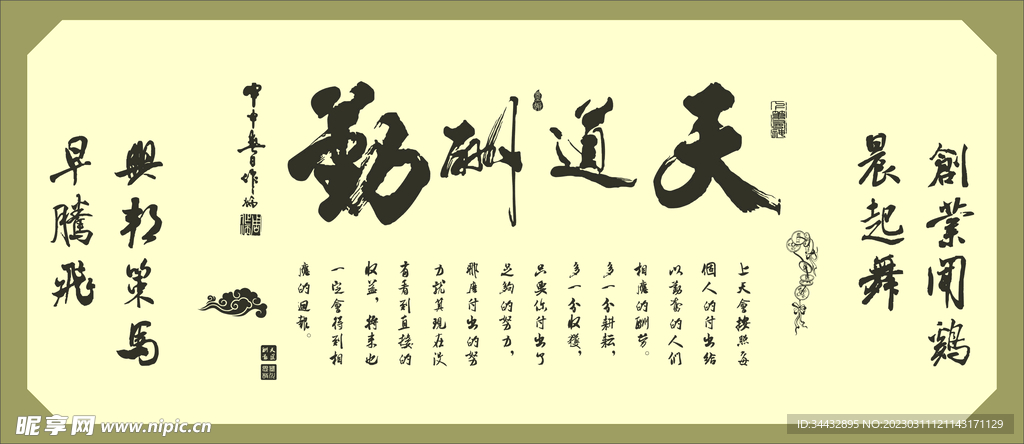 創業聞鷄
晨起舞
天道酬勤
上天會按照每
個人的付出給
以勤奮的人們
相應的酬勞。
多一分耕耘，
多一分收獲，
只要你付出了
足夠的努力，
那麼付出的努
力就算現在沒
有看到直接的
收益，將來也
一定會得到相
應的回報。
興邦策馬
早騰飛
昵享网 www.nipic.cn
ID:34432895 NO:20230311121143171129